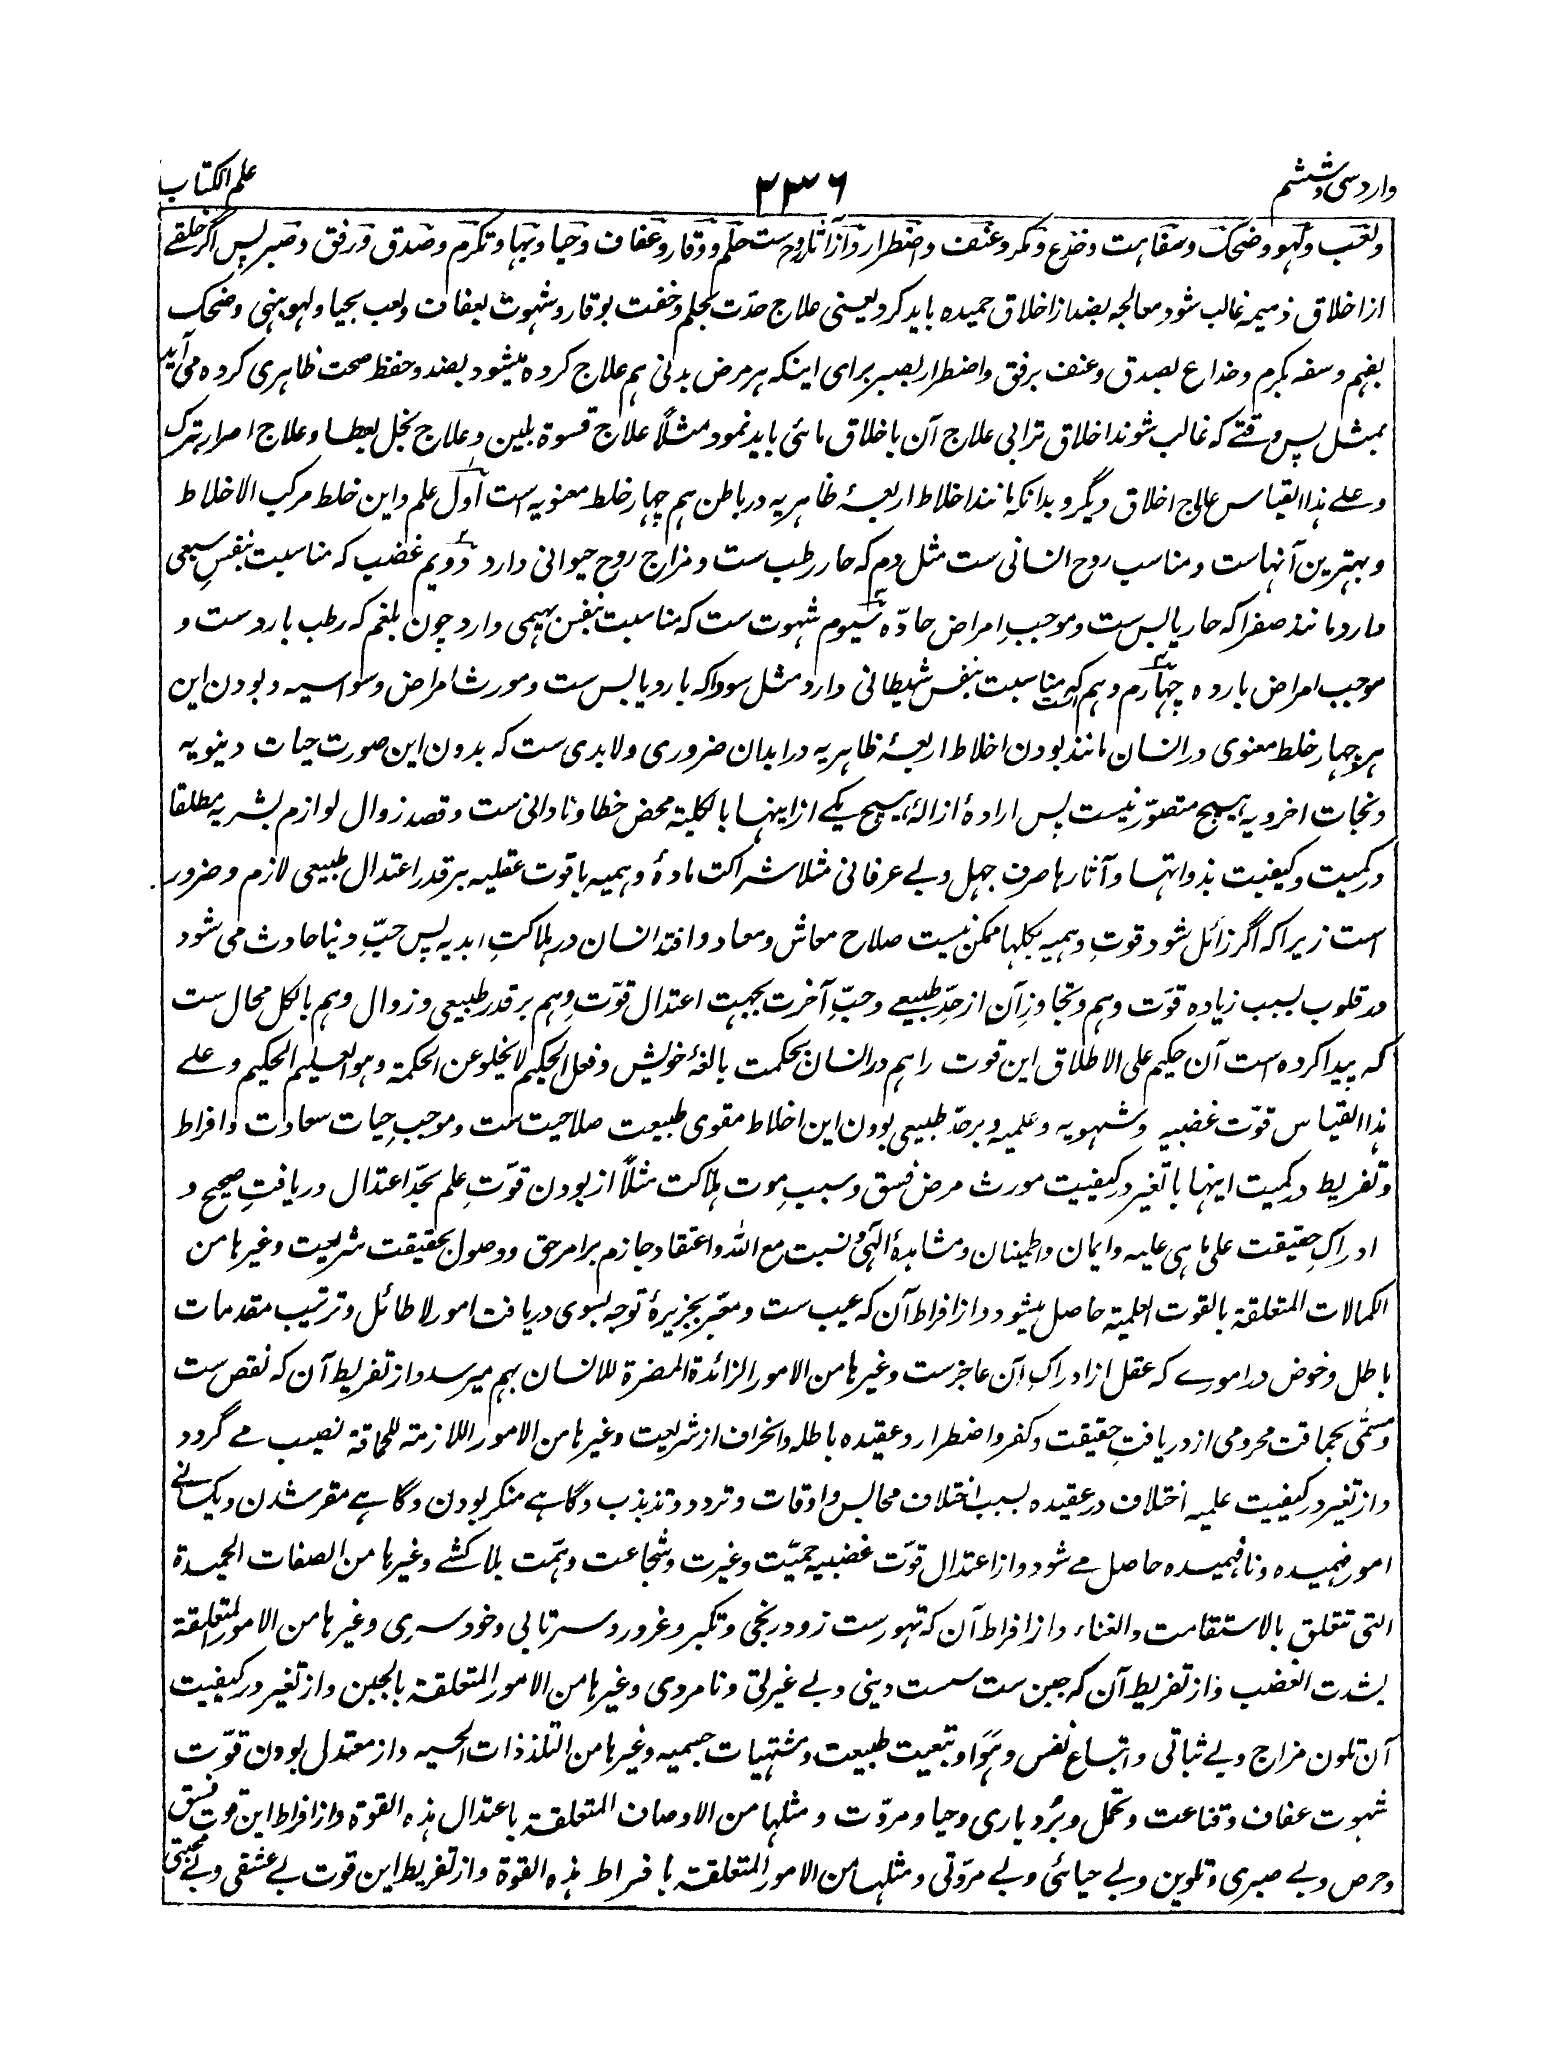 وارد سی و ششم
۲۳۶
علم الکتاب
ولعب ولهو وضحک وسفاهت وخدع ومکر وعنف واضطرار واز آثار روح ست حلم ووقار وعفاف وحیا وبها وتکرم وصدق ورفق وصبر پس اگر خلقے
از اخلاق ذمیمه غالب شود معالجه بضد از اخلاق حمیده باید کرد یعنی علاج حدّت بحلم وخفت بوقار وشهوت بعفاف ولعب بحیا ولهو بنهی وضحک
بفهم وسفه بکرم وخداع بصدق وعنف برفق واضطرار بصبر برای اینکه هر مرض بدنی هم علاج کرده میشود بضد وحفظ صحت ظاهری کرده می آید
بمثل پس وقتے که غالب شوند اخلاق ترابی علاج آن باخلاق مائی باید نمود مثلاً علاج قسوة بلین وعلاج بخل بعطا وعلاج اصرار بترک
وعلے هذا القیاس عالج اخلاق دیگر وبدانکه مانند اخلاط اربعهٔ ظاهریه در باطن هم چهار خلط معنویه است اول علم واین خلط مرکب الاخلاط
وبهترین آنهاست ومناسب روح انسانی ست مثل دم که حار رطب ست ومزاج روح حیوانی دارد دویم غضب که مناسبت بنفس سبعی
دارد مانند صفرا که حار یابس ست وموجب امراض حادّه سیوم شهوت ست که مناسبت بنفس بهیمی دارد چون بلغم که رطب بارد ست و
موجب امراض بارده چهارم وهم ست که مناسبت بنفس شیطانی دارد مثل سودا که بارد یابس ست ومورث امراض وسواسیه وبودن این
هر چهار خلط معنوی در انسان مانند بودن اخلاط اربعهٔ ظاهریه در ابدان ضروری ولابدی ست که بدون این صورت حیات دنیویه
ونجات اخرویه هیچ متصوّر نیست پس ارادهٔ ازالهٔ هیچ یکے از اینها بالکلیة محض خطا ونادانی ست وقصد زوال لوازم بشریه مطلقا
در کمیت وکیفیت بذواتها وآثارها صرف جهل وبے عرفانی مثلا شراکت مادهٔ وهمیه با قوت عقلیه بر قدر اعتدال طبیعی لازم وضرور
است زیرا که اگر زائل شود قوت وهمیه بکلها ممکن نیست صلاح معاش ومعاد وافتد انسان در هلاکتِ ابدیه پس حبِّ دنیا حادث می شود
در قلوب بسبب زیاده قوت وهم وتجاوزِ آن از حدِّ طبیعے وحبِّ آخرت بجهت اعتدال قوّتِ وهم بر قدر طبیعی وزوال وهم بالکل محال ست
که پیدا کرده است آن حکیم علی الاطلاق این قوت را هم در انسان بحکمت بالغهٔ خویش وفعل الحکیم لا یخلو عن الحکمة وهو العلیم الحکیم وعلے
هذا القیاس قوّت غضبیه وشهویه وعلمیه وبر حدّ طبیعی بودن این اخلاط مقوی طبیعت صلاحیت ست وموجبِ حیات سعادت وافراط
وتفریط در کمیت اینها با تغیر در کیفیت مورث مرض فسق وسببِ موت هلاکت مثلاً از بودن قوّتِ علم بحدّ اعتدال دریافتِ صحیح و
ادراکِ حقیقت علی ما هی علیه وایمان واطمینان ومشاهدهٔ الٰهی ونسبت مع اللّٰه واعتقاد جازم بر امر حق ووصول بحقیقت شریعت وغیرها من
الکمالات المتعلقة بالقوت العلمیة حاصل میشود واز افراط آن که عیب ست ومعبّر بجزیرهٔ توجه بسوی دریافت امور لا طائل وترتیب مقدمات
باطل وخوض در امورے که عقل از ادراکِ آن عاجز ست وغیرها من الامور الزائدة المضرة للانسان بهم میرسد واز تفریط آن که نقص ست
ومسمّی بحماقت محرومی از دریافتِ حقیقت وکفر واضطرار وعقیده باطله وانحراف از شریعت وغیرها من الامور اللازمة للحماقة نصیب مے گردد
واز تغیر در کیفیت علمیه اختلاف در عقیده بسبب اختلاف مجالس واوقات وتردد وتذبذب وگاهے منکر بودن وگاهے مقر شدن ویکسانے
امور فهمیده ونافهمیده حاصل مے شود واز اعتدال قوّت غضبیه حمیّت وغیرت وشجاعت وهمّت بلا کشے وغیرها من الصفات الحمیدة
التی تتعلق بالاستقامت والغناء واز افراط آن که تهور ست زود رنجی وتکبر وغرور وسرتابی وخود سری وغیرها من الامور المتعلقة
بشدت الغضب واز تفریط آن که جبن ست سست دینی وبے غیرتی ونامردی وغیرها من الامور المتعلقة بالجبن واز تغیر در کیفیت
آن تلون مزاج وبے ثباتی واتباع نفس وهوا وتبعیت طبیعت ومشتهیات جسمیه وغیرها من التلذذات الحسیه واز معتدل بودن قوّت
شهوت عفاف وقناعت وتحمل وبُردباری وحیا ومروّت ومثلها من الاوصاف المتعلقة باعتدال هذه القوة واز افراط این قوت فسق
وحرص وبے صبری وتلوین وبے حیائی وبے مروّتی ومثلها من الامور المتعلقة بافراط هذه القوة واز تفریط این قوت بے عشقی وبے محبتی